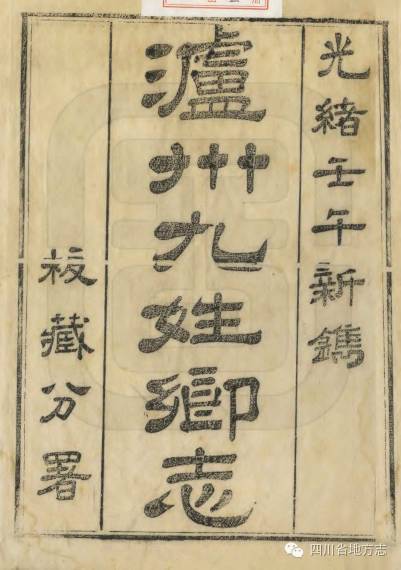 光緒壬午新鐫
瀘州九姓鄉志
板藏分署
四川省地方志